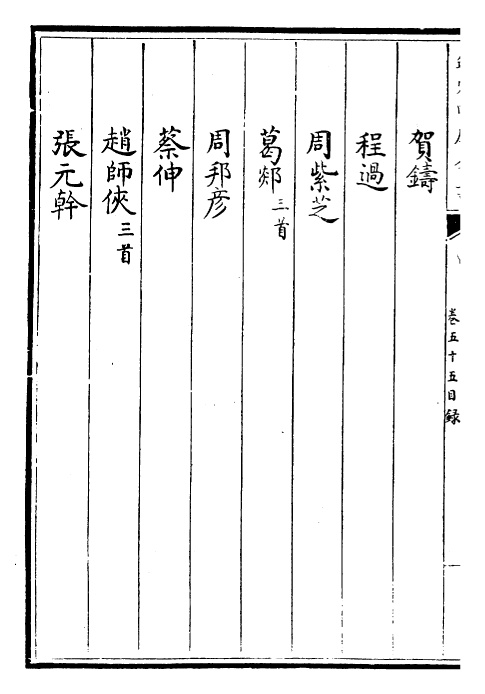 卷五十五目録
賀鑄
程過
周紫芝
葛郯三首
周邦彦
蔡伸
趙師俠三首
張元幹